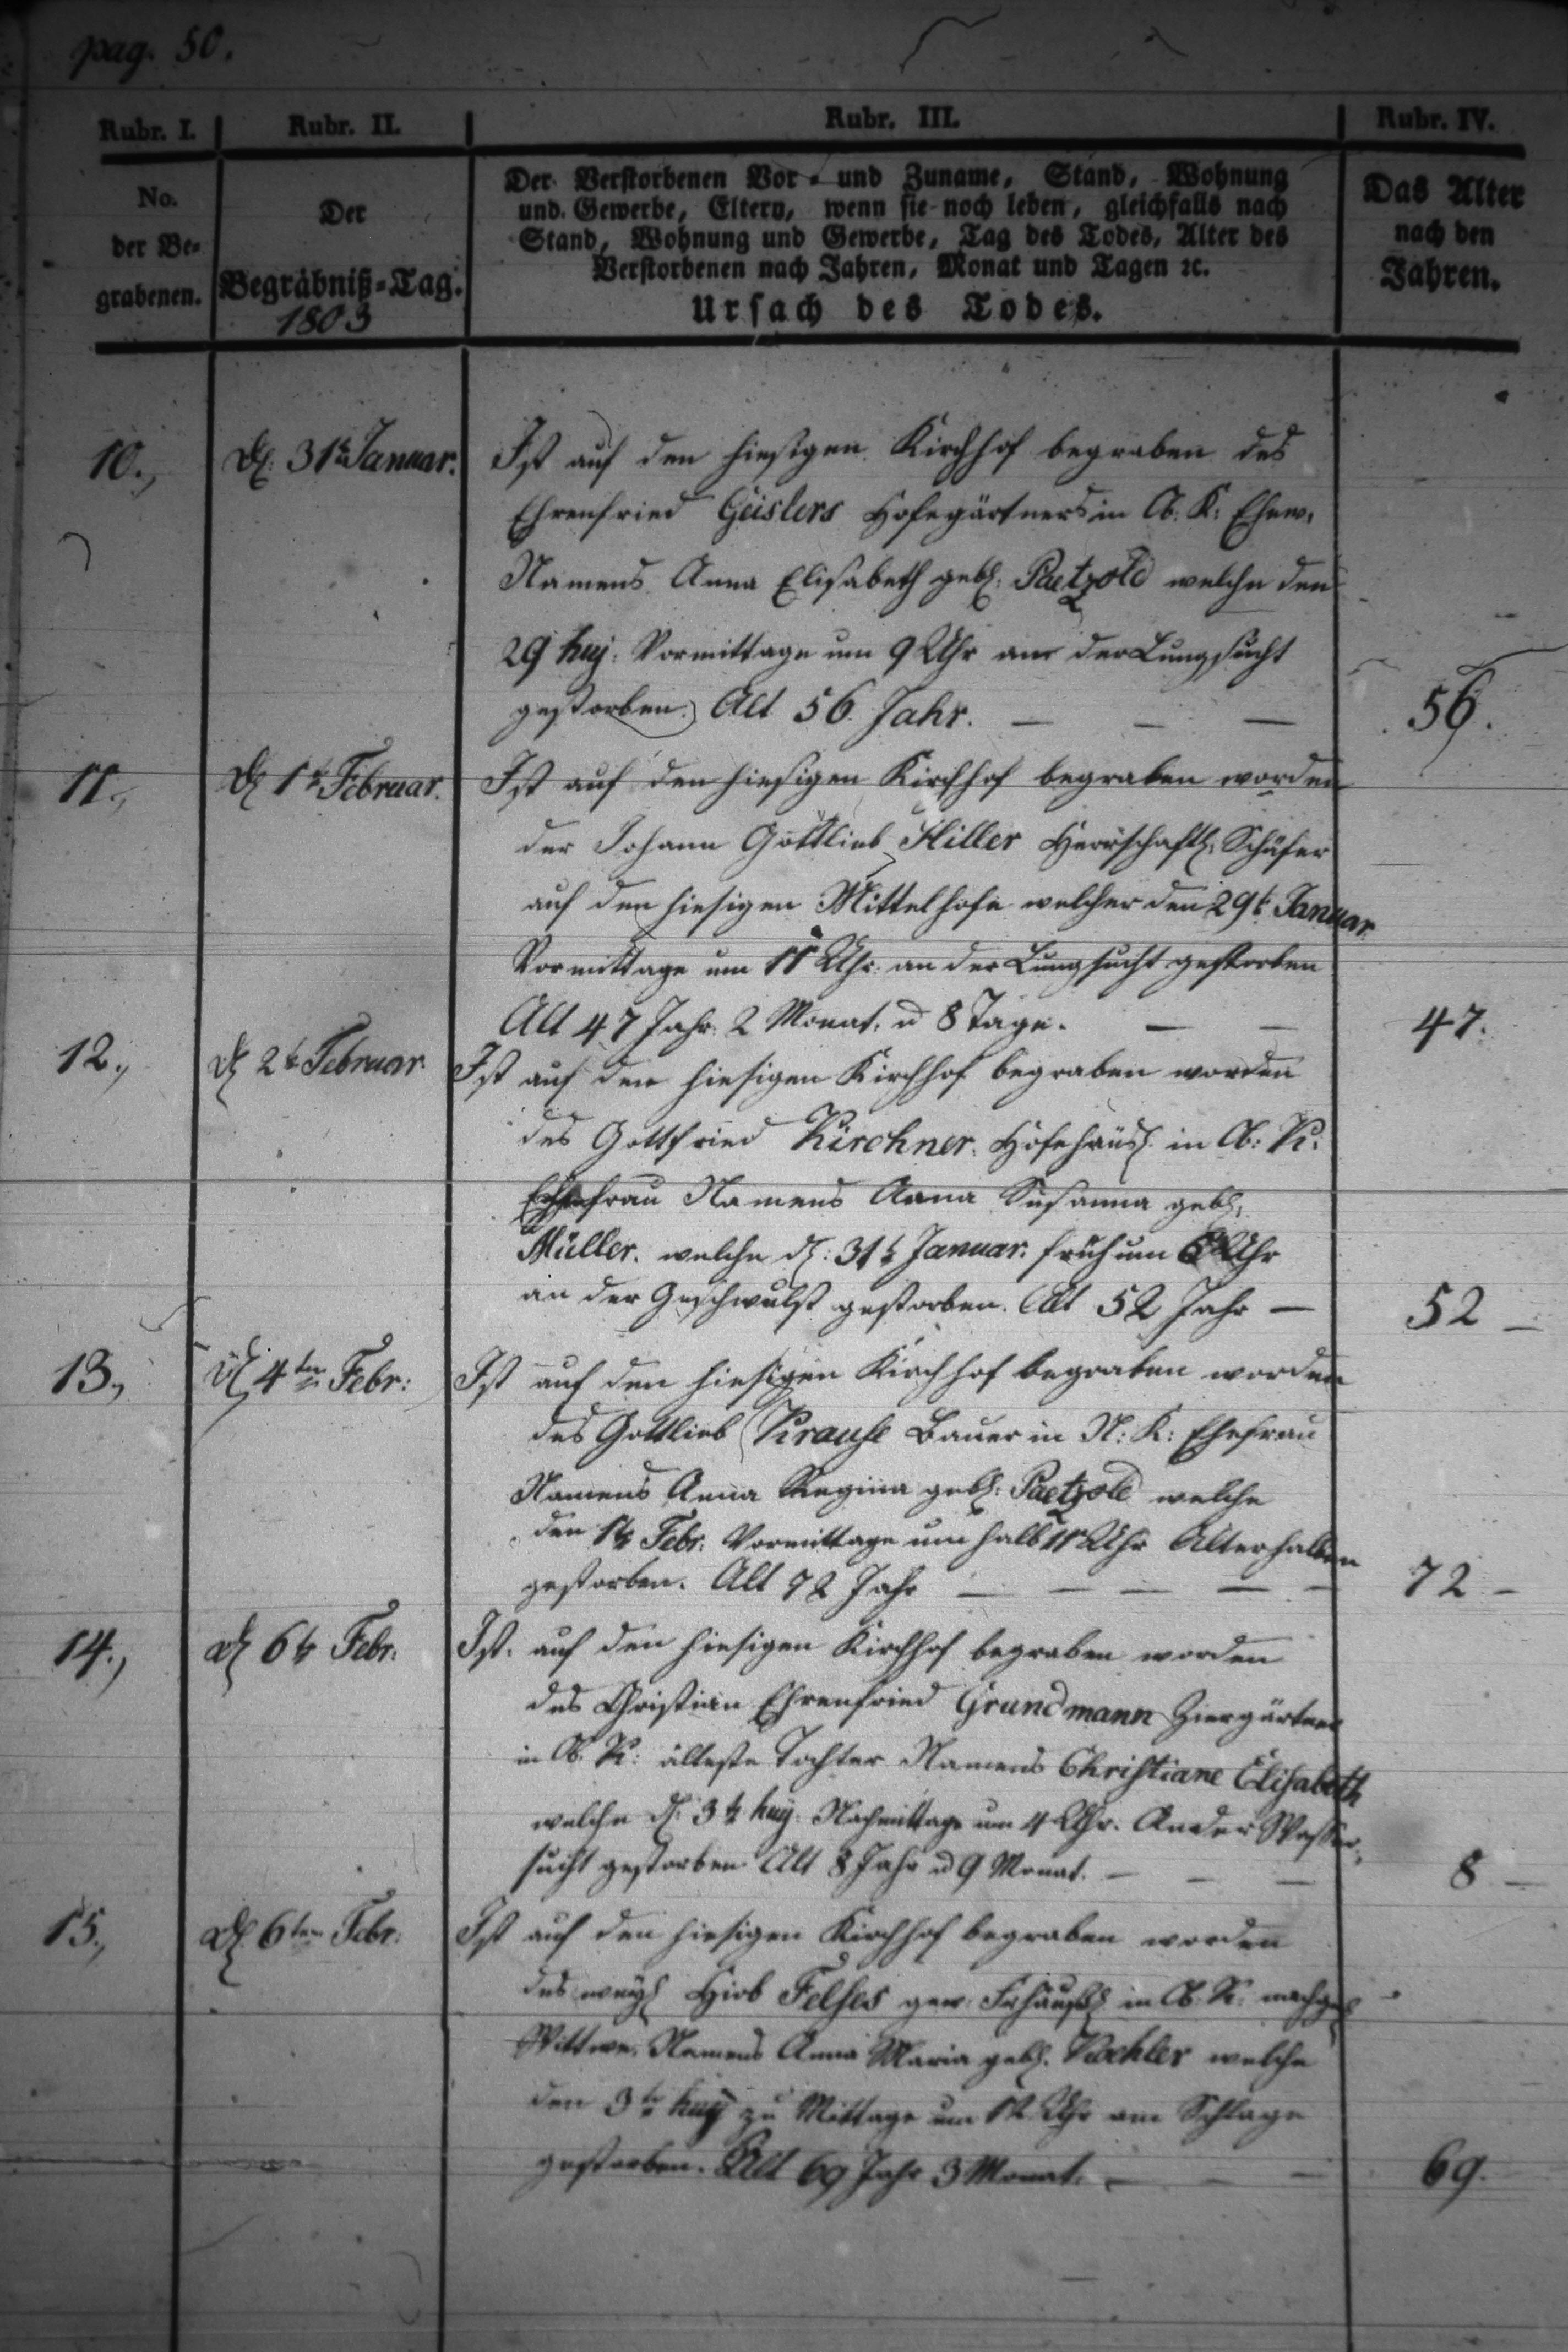 pag. 50.
Rubr. I. Rubr. II. Rubr. III. Rubr. IV.
No. der Be= grabenen.
Der Begräbniß=Tag.
1803
Der Verstorbenen Vor= und Zuname, Stand, Wohnung
und Gewerbe, Eltern, wenn sie noch leben, gleichfalls nach
Stand, Wohnung und Gewerbe, Tag des Todes, Alter des
Verstorbenen nach Jahren, Monat und Tagen ꝛc.
Ursach des Todes.
Das Alter
nach den
Jahren.
10., d. 31t Januar. Ist auf den hiesigen Kirchhof begraben des
Ehrenfried Geislers Hofegärtners in Ob: K: Ehew.
Namens Anna Elisabeth geb: Paetzold welche den
29 huj: Vormittage um 9 Uhr an der Lungsucht
gestorben. Alt 56 Jahr. — — — 56.
11., d 1t Februar. Ist auf den hiesigen Kirchhof begraben worden
der Johann Gottlieb Hiller Herrschaftl: Schäfer
auf den hiesigen Mittelhofe welcher den 29t Januar
Vormittage um 11 Uhr an der Lungsucht gestorben
Alt 47 Jahr 2 Monat. u 8 Tage. — — 47.
12., d 2t Februar Ist auf den hiesigen Kirchhof begraben worden
des Gottfried Kirchner. Hofehäusl. in Ob: K:
Ehefrau Namens Anna Susanna geb:
Müller. welche d: 31t Januar. früh um 6 Uhr
an der Geschwulst gestorben. Alt 52 Jahr — 52 —
13., d 4ten Febr: Ist auf den hiesigen Kirchhof begraben worden
des Gottlieb Krause Bauer in N: K: Ehefrau
Namens Anna Regina geb: Paetzold welche
den 1t Febr. Vormittage um halb 11 Uhr Alterhalben
gestorben. Alt 72 Jahr — — — — — 72 —
14., d 6t Febr: Ist auf den hiesigen Kirchhof begraben worden
des Christian Ehrenfried Grundmann Ziergärtner
in Ob. K: älteste Tochter Namens Christiane Elisabeth
welche d: 3t huj. Nachmittage um 4 Uhr. An der Wasser=
sucht gestorben Alt 8 Jahr u 9 Monat. — — — 8 —
15., d. 6ten Febr: Ist auf den hiesigen Kirchhof begraben worden
des weyl Hiob Felses gew. in Ob. K: nachgel
Wittwe. Namens Anna Maria geb. Koehler welche
den 3t huj zu Mittage um 12 Uhr am Schlage
gestorben. Alt 69 Jahr 3 Monat. — — — 69.